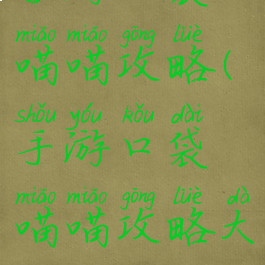 miáo miáo gōng lüè
喵喵攻略(
shǒu yóu kǒu dài
手游口袋
miáo miáo gōng lüè dà
喵喵攻略大